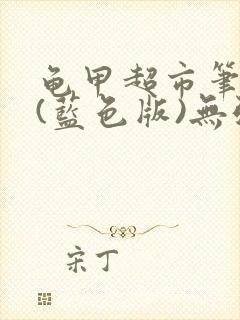 龟甲超市筆
(藍色版)無
宋丁